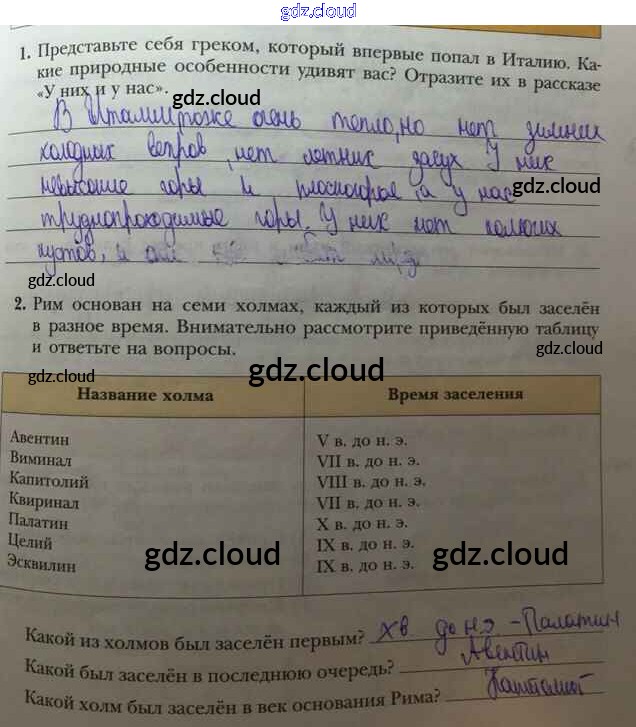 gdz.cloud
1. Представьте себя греком, который впервые попал в Италию. Ка-
кие природные особенности удивят вас? Отразите их в рассказе
«У них и у нас».
gdz.cloud
В Италии тоже очень тепло, но нет зимних
холодных ветров, нет летних засух У них
gdz.cloud
невысокие горы и плоскогорья, а у нас
gdz.cloud
труднопроходимые горы. У них нет колючих
кустов, и
gdz.cloud
2. Рим основан на семи холмах, каждый из которых был заселён
в разное время. Внимательно рассмотрите приведённую таблицу
и ответьте на вопросы.
gdz.cloud
gdz.cloud
gdz.cloud
Название холма Время заселения
Авентин V в. до н. э.
Виминал VII в. до н. э.
Капитолий VIII в. до н. э.
Квиринал VII в. до н. э.
Палатин X в. до н. э.
Целий IX в. до н. э.
Эсквилин IX в. до н. э.
gdz.cloud
gdz.cloud
Какой из холмов был заселён первым? Xв. до н.э. - Палатин
Какой был заселён в последнюю очередь? Авентин
Какой холм был заселён в век основания Рима? Капитолий